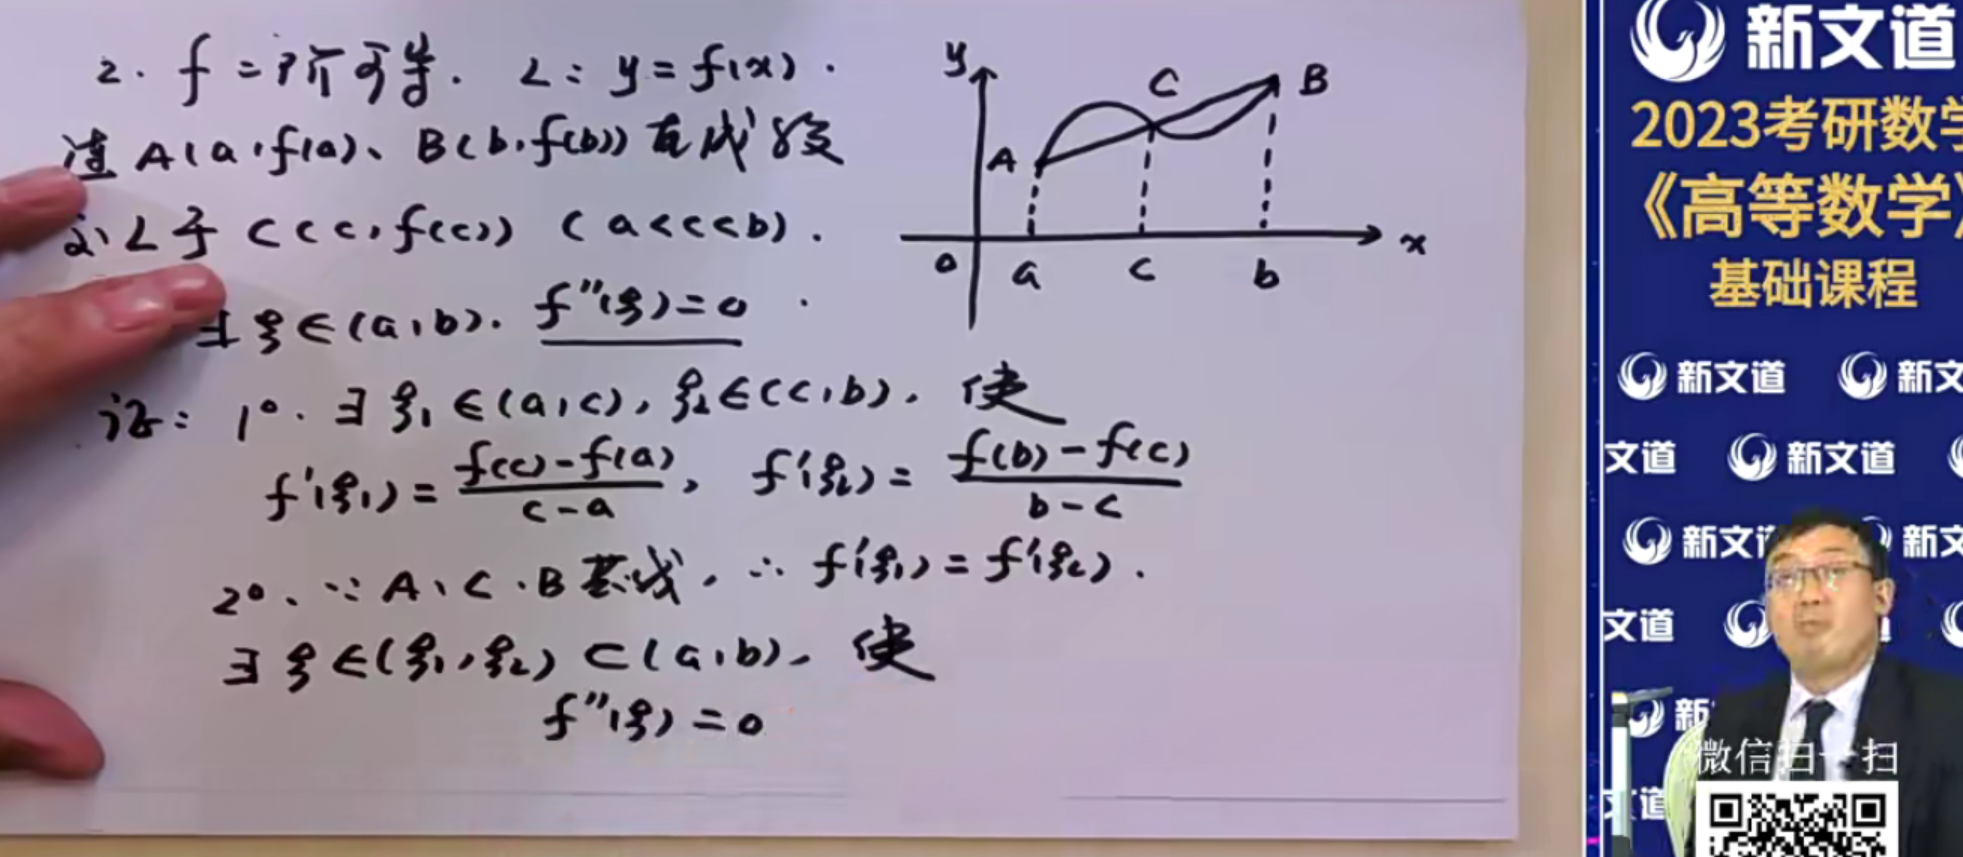 2. f 二阶可导. L: y=f(x).
过 A(a,f(a))、B(b,f(b)) 直线段
交L于 C(c,f(c)) (a<c<b).
∃ ξ∈(a,b). f''(ξ)=0.
证: 1°. ∃ ξ₁∈(a,c), ξ₂∈(c,b), 使
f'(ξ₁)= f(c)-f(a) / c-a , f'(ξ₂)= f(b)-f(c) / b-c
2°. ∵ A、C、B 共线, ∴ f'(ξ₁)=f'(ξ₂).
∃ ξ∈(ξ₁,ξ₂)⊂(a,b), 使
f''(ξ)=0
y
A
C
B
0
a
c
b
x
新文道
2023考研数学
《高等数学》
基础课程
新文道 新文
文道 新文道
新文道 新文
文道
新
微信扫一扫
道